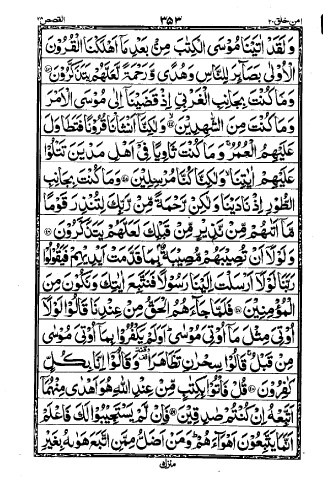 امن خلق ۲۰ ۳۵۳ القصص ۲۸
وَلَقَدْ اٰتَيْنَا مُوْسَى الْكِتٰبَ مِنْۢ بَعْدِ مَاۤ اَهْلَكْنَا الْقُرُوْنَ
الْاُوْلٰى بَصَآئِرَ لِلنَّاسِ وَهُدًى وَّرَحْمَةً لَّعَلَّهُمْ يَتَذَكَّرُوْنَ
وَمَا كُنْتَ بِجَانِبِ الْغَرْبِيِّ اِذْ قَضَيْنَاۤ اِلٰى مُوْسَى الْاَمْرَ
وَمَا كُنْتَ مِنَ الشّٰهِدِيْنَ وَلٰكِنَّاۤ اَنْشَاْنَا قُرُوْنًا فَتَطَاوَلَ
عَلَيْهِمُ الْعُمُرُ وَمَا كُنْتَ ثَاوِيًا فِيْۤ اَهْلِ مَدْيَنَ تَتْلُوْا
عَلَيْهِمْ اٰيٰتِنَا وَلٰكِنَّا كُنَّا مُرْسِلِيْنَ وَمَا كُنْتَ بِجَانِبِ
الطُّوْرِ اِذْ نَادَيْنَا وَلٰكِنْ رَّحْمَةً مِّنْ رَّبِّكَ لِتُنْذِرَ قَوْمًا
مَّاۤ اَتٰىهُمْ مِّنْ نَّذِيْرٍ مِّنْ قَبْلِكَ لَعَلَّهُمْ يَتَذَكَّرُوْنَ
وَلَوْلَاۤ اَنْ تُصِيْبَهُمْ مُّصِيْبَةٌۢ بِمَا قَدَّمَتْ اَيْدِيْهِمْ فَيَقُوْلُوْا
رَبَّنَا لَوْلَاۤ اَرْسَلْتَ اِلَيْنَا رَسُوْلًا فَنَتَّبِعَ اٰيٰتِكَ وَنَكُوْنَ مِنَ
الْمُؤْمِنِيْنَ فَلَمَّا جَآءَهُمُ الْحَقُّ مِنْ عِنْدِنَا قَالُوْا لَوْلَاۤ
اُوْتِيَ مِثْلَ مَاۤ اُوْتِيَ مُوْسٰى اَوَلَمْ يَكْفُرُوْا بِمَاۤ اُوْتِيَ مُوْسٰى
مِنْ قَبْلُ قَالُوْا سِحْرٰنِ تَظَاهَرَا وَقَالُوْۤا اِنَّا بِكُلٍّ
كٰفِرُوْنَ قُلْ فَاْتُوْا بِكِتٰبٍ مِّنْ عِنْدِ اللّٰهِ هُوَ اَهْدٰى مِنْهُمَاۤ
اَتَّبِعْهُ اِنْ كُنْتُمْ صٰدِقِيْنَ فَاِنْ لَّمْ يَسْتَجِيْبُوْا لَكَ فَاعْلَمْ
اَنَّمَا يَتَّبِعُوْنَ اَهْوَآءَهُمْ وَمَنْ اَضَلُّ مِمَّنِ اتَّبَعَ هَوٰىهُ بِغَيْرِ